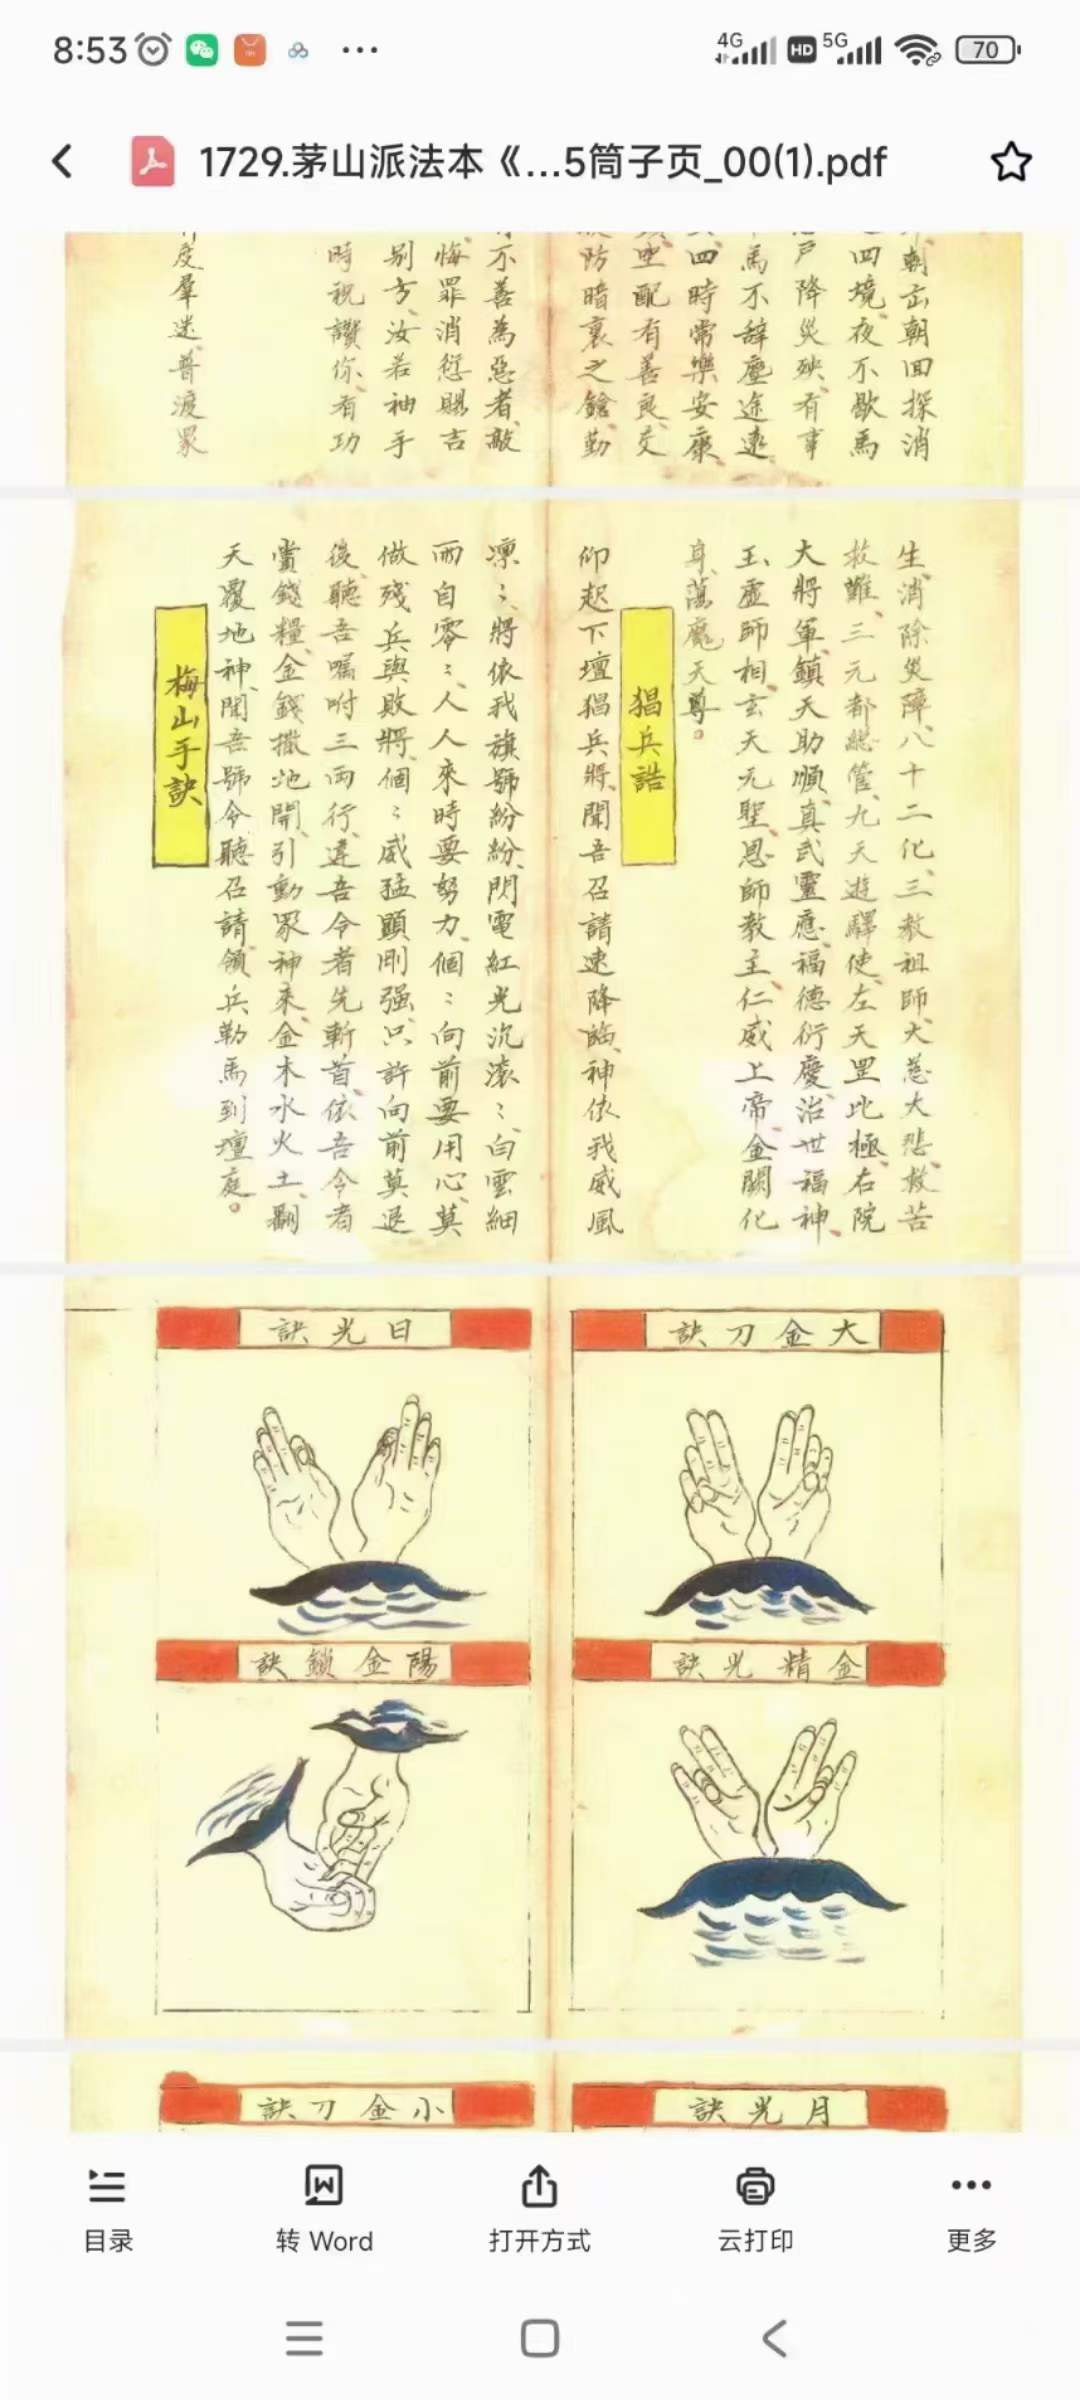 8:53
4G HD 5G 70
1729.茅山派法本《...5筒子页_00(1).pdf
朝去朝回探消
四境夜不歇馬
戸降災殃有事
馬不辞塵途速
四時常樂安康
配有善良交
防暗裏之鎗勤
不善為惡者敲
悔罪消愆賜吉
别方汝若袖手
時祝讚你有功
度羣迷普渡眾
生消除災障八十二化三教祖師大慈大悲救苦
救難三元都總管九天遊驛使左天罡北極右院
大將軍鎮天助順真武靈應福德衍慶治世福神
玉虛師相玄天元聖恩師教主仁威上帝金闕化
身蕩魔天尊。
猖兵誥
仰起下壇猖兵將聞吾召請速降臨神依我威風
凛:將依我旗號紛紛閃電紅光沉滚:白雲細
雨自零:人人來時要努力個:向前要用心莫
做殘兵與敗將個:威猛顯剛强只許向前莫退
後聽吾囑咐三兩行違吾令者先斬首依吾令者
賞錢糧金錢撒地開引動眾神来金木水火土翻
天覆地神聞吾號令聽召請領兵勒馬到壇庭。
梅山手訣
訣刀金大
訣光日
訣光精金
訣鎖金陽
訣光月
訣刀金小
目录
转 Word
打开方式
云打印
更多